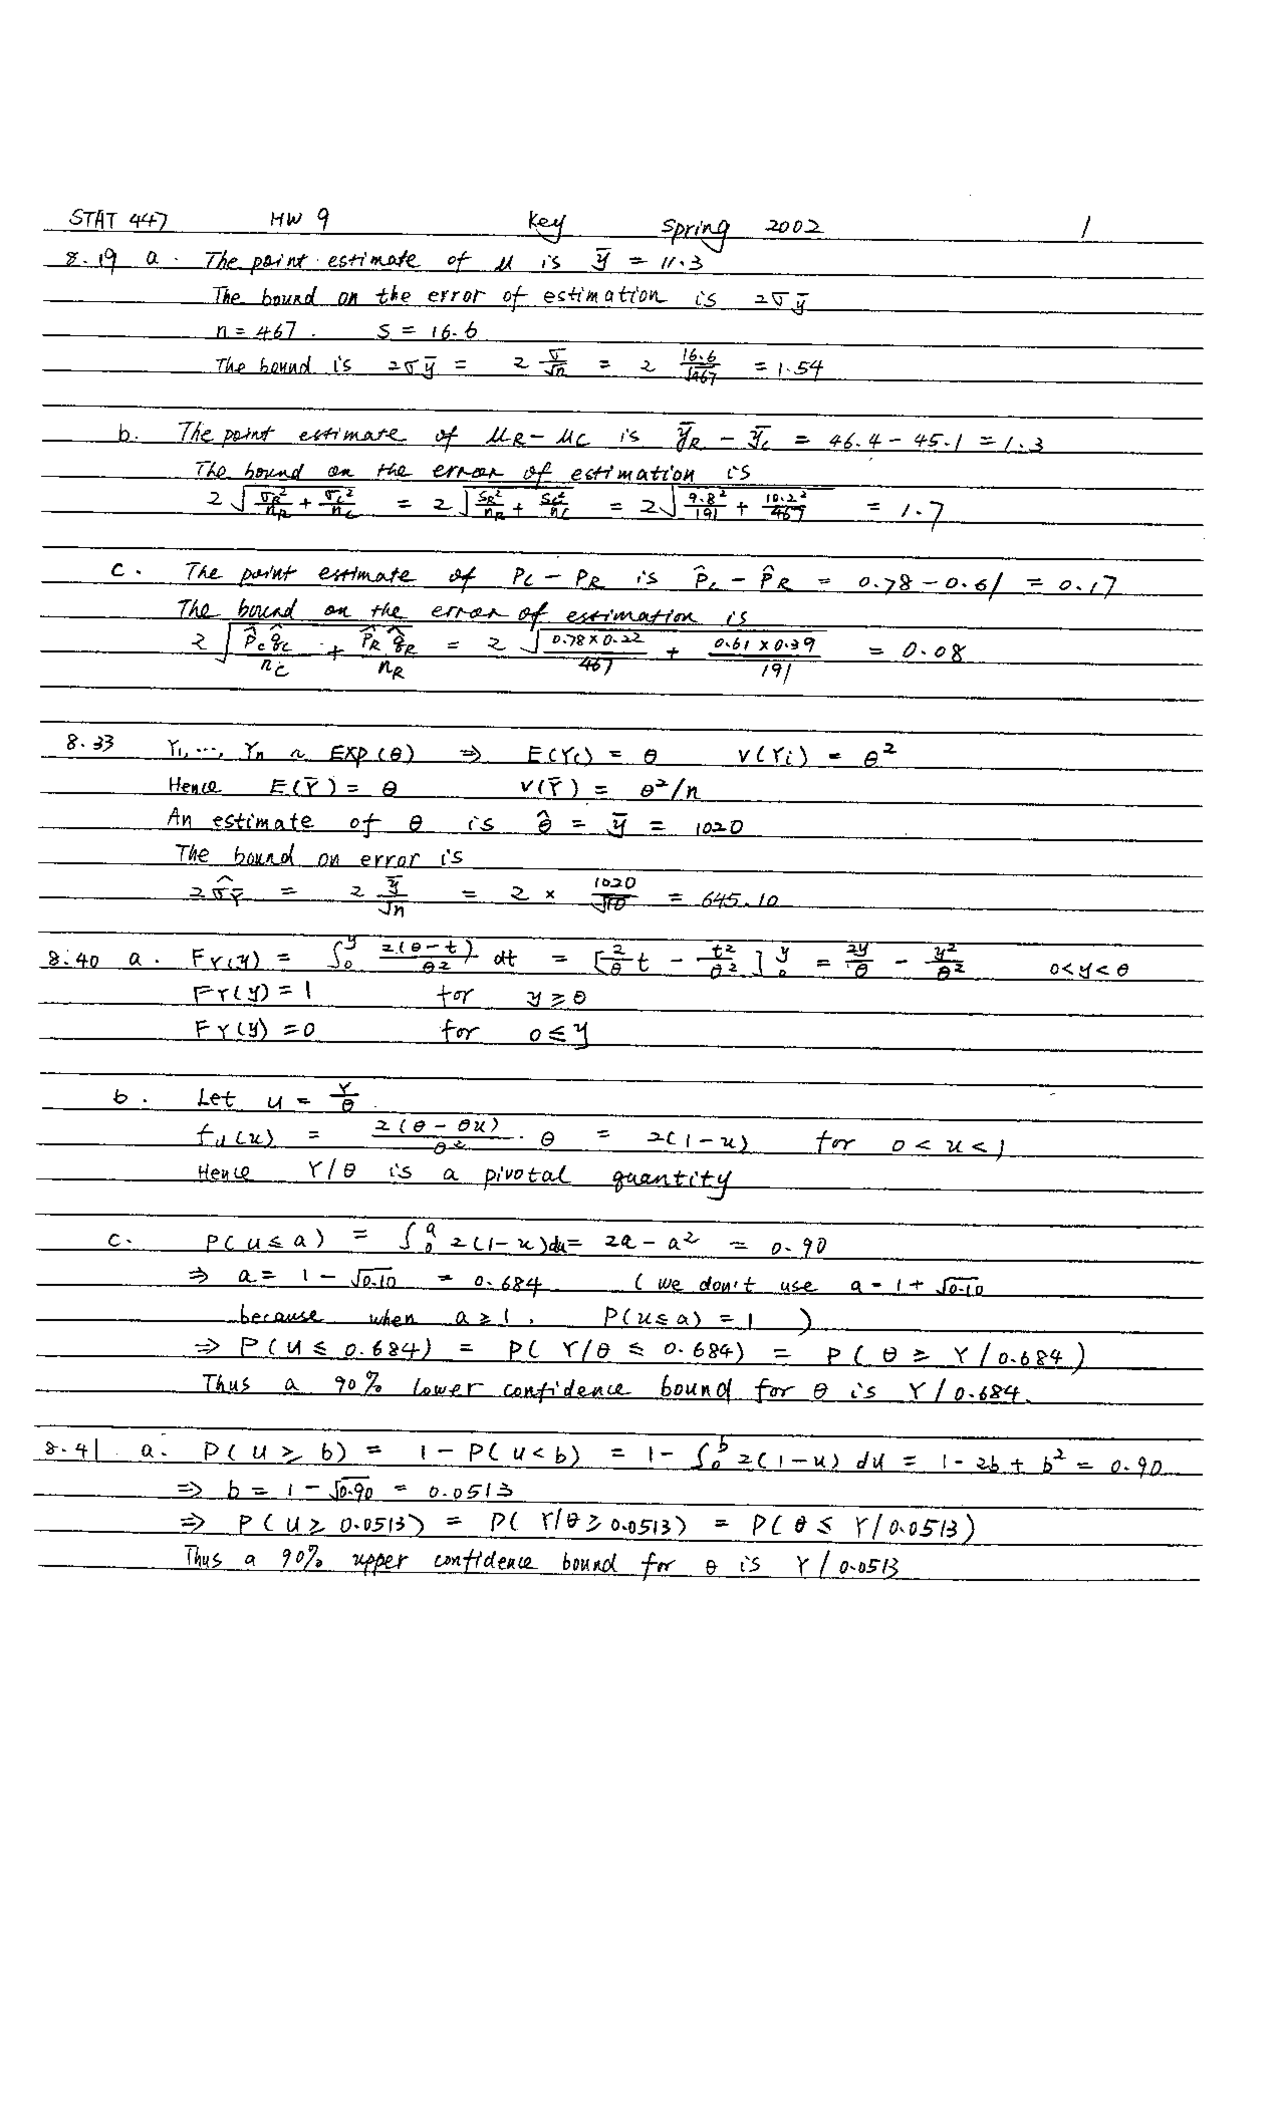 STAT 447 HW 9 Key Spring 2002 1
8.19 a. The point estimate of μ is ȳ = 11.3
The bound on the error of estimation is 2σȳ
n = 467. S = 16.6
The bound is 2σȳ = 2 σ/√n = 2 16.6/√467 = 1.54
b. The point estimate of μR − μC is ȳR − ȳC = 46.4 − 45.1 = 1.3
The bound on the error of estimation is
2 √(σR²/nR + σC²/nC) = 2 √(SR²/nR + SC²/nC) = 2 √(9.8²/191 + 10.2²/467) = 1.7
c. The point estimate of PC − PR is P̂C − P̂R = 0.78 − 0.61 = 0.17
The bound on the error of estimation is
2 √(P̂C q̂C/nC + P̂R q̂R/nR) = 2 √(0.78×0.22/467 + 0.61×0.39/191) = 0.08
8.33 Y1, ..., Yn ~ EXP(θ) ⇒ E(Yi) = θ V(Yi) = θ²
Hence E(Ȳ) = θ V(Ȳ) = θ²/n
An estimate of θ is θ̂ = ȳ = 1020
The bound on error is
2σ̂Ȳ = 2 ȳ/√n = 2 × 1020/√10 = 645.10
8.40 a. FY(y) = ∫₀^y 2(θ−t)/θ² dt = [2/θ t − t²/θ²]₀^y = 2y/θ − y²/θ² 0<y<θ
FY(y) = 1 for y ≥ θ
FY(y) = 0 for 0 ≤ y
b. Let u = Y/θ.
fu(u) = 2(θ − θu)/θ² · θ = 2(1−u) for 0 < u < 1
Hence Y/θ is a pivotal quantity
c. P(u ≤ a) = ∫₀^a 2(1−u)du = 2a − a² = 0.90
⇒ a = 1 − √0.10 = 0.684 (we don't use a = 1 + √0.10
because when a ≥ 1, P(u ≤ a) = 1 )
⇒ P(u ≤ 0.684) = P( Y/θ ≤ 0.684) = P( θ ≥ Y/0.684)
Thus a 90% lower confidence bound for θ is Y/0.684.
8.41 a. P(u ≥ b) = 1 − P(u < b) = 1 − ∫₀^b 2(1−u) du = 1 − 2b + b² = 0.90
⇒ b = 1 − √0.90 = 0.0513
⇒ P(u ≥ 0.0513) = P( Y/θ ≥ 0.0513) = P(θ ≤ Y/0.0513)
Thus a 90% upper confidence bound for θ is Y/0.0513